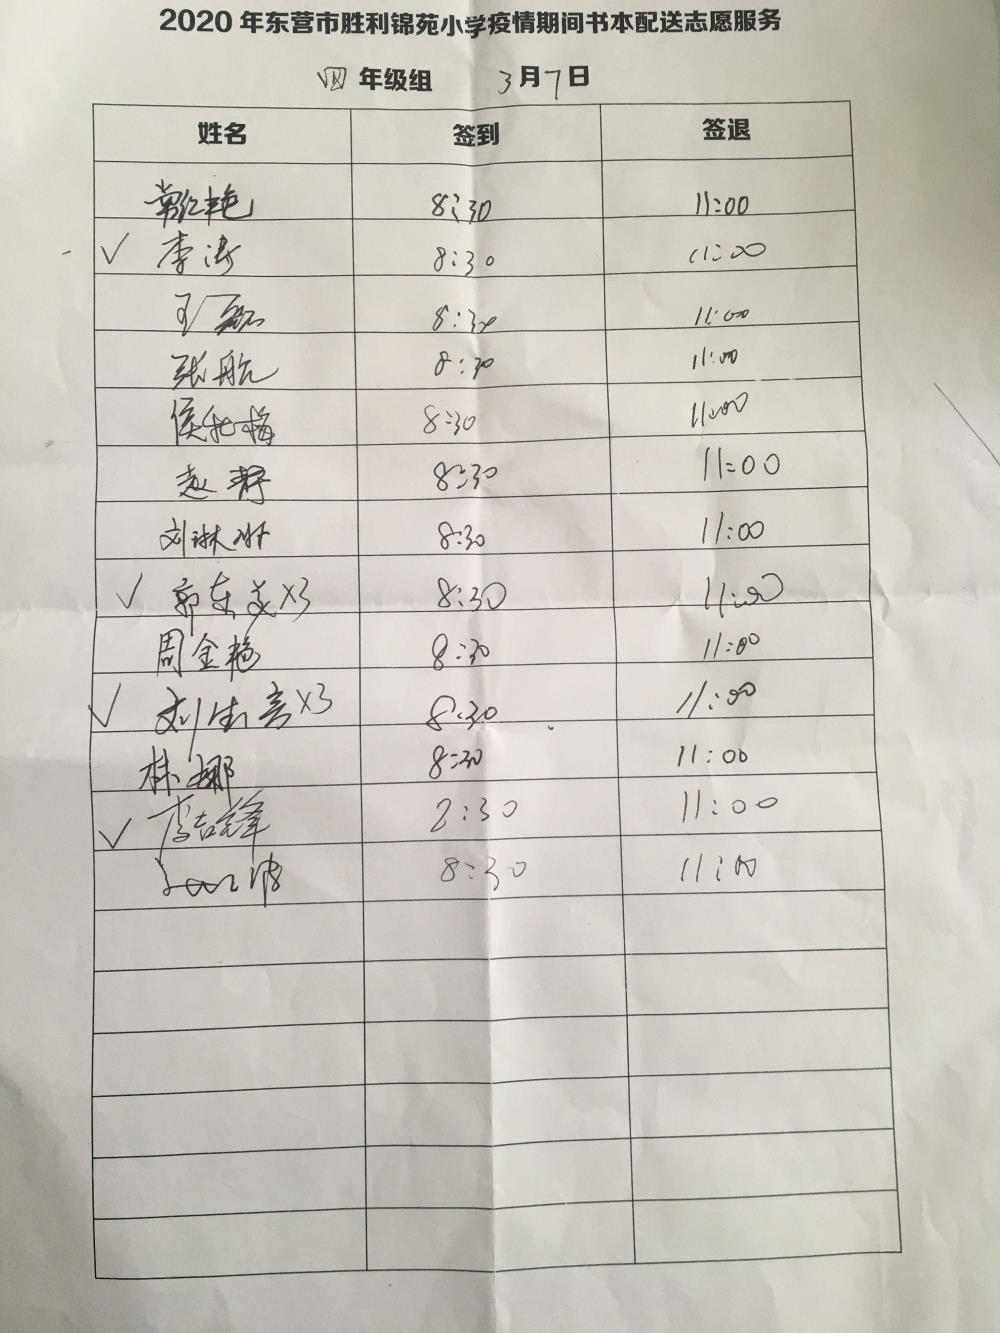 2020年东营市胜利锦苑小学疫情期间书本配送志愿服务
四 年级组 3月7日
姓名 签到 签退
常红艳 8:30 11:00
✓ 李涛 8:30 11:00
王磊 8:30 11:00
张航 8:30 11:00
侯 梅 8:30 11:00
赵静 8:30 11:00
刘琳琳 8:30 11:00
✓ 郭东美×3 8:30 11:00
周金艳 8:30 11:00
✓ 刘 ×3 8:30 11:00
林娜 8:30 11:00
✓ 李 锋 2:30 11:00
波 8:30 11:00